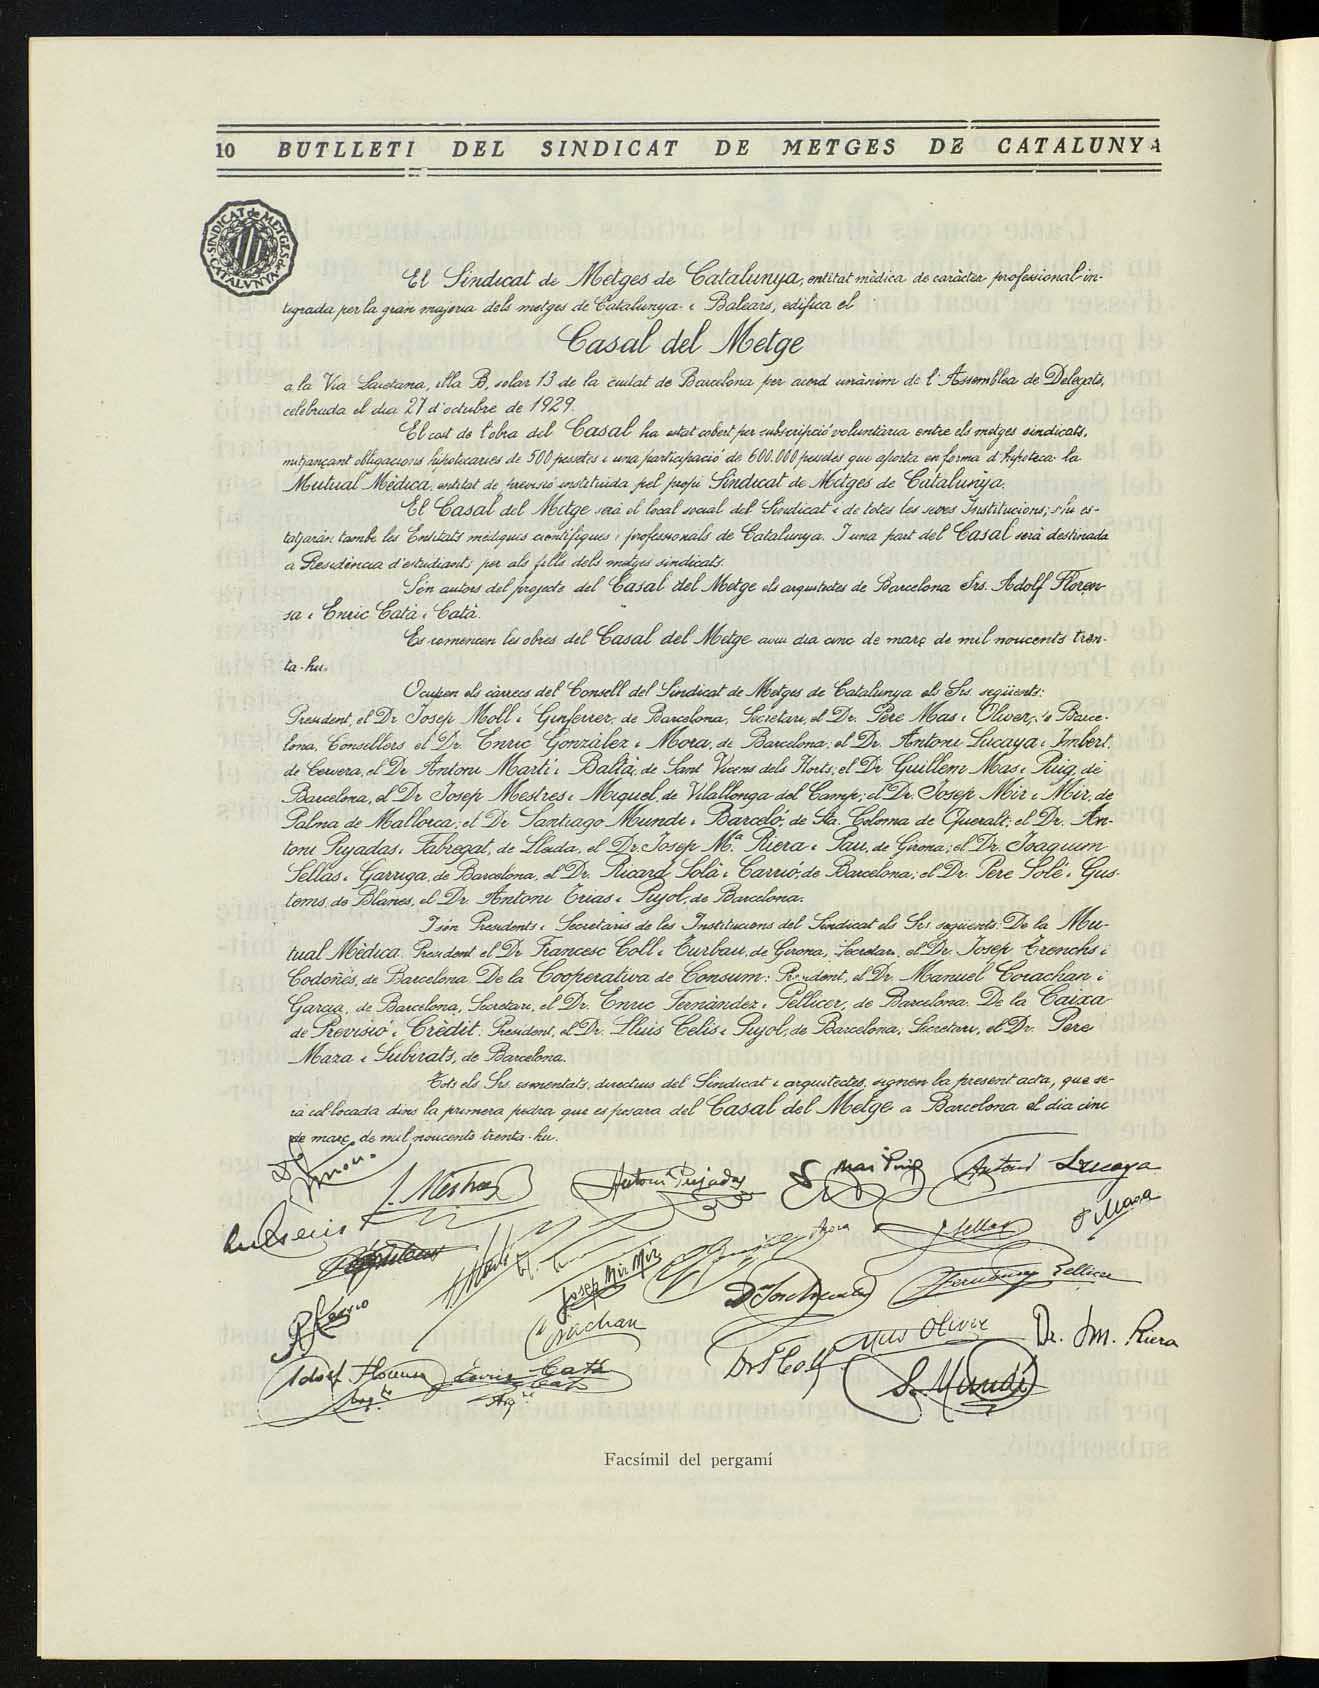 10 BUTLLETI DEL SINDICAT DE METGES DE CATALUNYA
SINDICAT de METGES de CATALVNYA
El Sindicat de Metges de Catalunya, entitat mèdica de caràcter professional in-
tegrada per la gran majoria dels metges de Catalunya i Balears, edifica el
Casal del Metge
a la Via Laietana, illa B, solar 13 de la ciutat de Barcelona per acord unànim de l'Assemblea de Delegats,
celebrada el dia 27 d'octubre de 1929.
El cost de l'obra del Casal ha estat cobert per subscripció voluntària entre els metges sindicats,
mitjançant obligacions hipotecaries de 500 pessetes i una participació de 600.000 pessetes que aporta en forma d'hipoteca la
Mutual Mèdica, entitat de previsió instituida pel propi Sindicat de Metges de Catalunya.
El Casal del Metge serà el local social del Sindicat i de totes les seves Institucions; s'hi es-
tatjaràn també les Entitats mèdiques cientifiques i professionals de Catalunya. I una part del Casal serà destinada
a Residència d'estudiants per als fills dels metges sindicats.
Són autors del projecte del Casal del Metge els arquitectes de Barcelona Srs. Adolf Floren-
sa i Enric Catà i Catà.
Es comencen les obres del Casal del Metge avui dia cinc de març de mil noucents tren-
ta-hu.
Ocupen els càrrecs del Consell del Sindicat de Metges de Catalunya els Srs. següents:
President, el Dr. Josep Moll i Ginferrer, de Barcelona, Secretari, el Dr. Pere Mas i Oliver, de Barce-
lona, Consellers el Dr. Enric Gonzàlez i Mora, de Barcelona; el Dr. Antoni Lucaya i Imbert,
de Cervera, el Dr. Antoni Martí i Baltà, de Sant Vicens dels Horts; el Dr. Guillem Mas i Puig, de
Barcelona, el Dr. Josep Mestres i Miquel, de Vilallonga del Camp; el Dr. Josep Mir i Mir, de
Palma de Mallorca; el Dr. Santiago Mundi i Barceló, de Sta. Coloma de Queralt; el Dr. An-
toni Pujadas i Fabregat, de Lleida, el Dr. Josep Mª. Riera i Pau, de Girona; el Dr. Joaquim
Sellàs i Garriga, de Barcelona, el Dr. Ricard Solà i Carrió, de Barcelona; el Dr. Pere Solé i Gus-
tems, de Blanes, el Dr. Antoni Trias i Pujol, de Barcelona.
I són Presidents i Secretaris de les Institucions del Sindicat els Srs. següents: De la Mu-
tual Mèdica. President el Dr. Francesc Coll i Turbau, de Girona, Secretari, el Dr. Josep Trenchs i
Codoñés, de Barcelona. De la Cooperativa de Consum: President, el Dr. Manuel Corachan i
Garcia, de Barcelona, Secretari, el Dr. Enric Fernàndez i Pellicer, de Barcelona. De la Caixa
de Previsió i Crèdit: President, el Dr. Lluis Celis i Pujol, de Barcelona; Secretari, el Dr. Pere
Maza i Subirats, de Barcelona.
Tots els Srs. esmentats, directius del Sindicat i arquitectes, signen la present acta, que se-
rà col·locada dins la primera pedra que es posara del Casal del Metge a Barcelona el dia cinc
de març de mil noucents trenta-hu.
J. Mestres Antoni Pujadas Mas Puig Antoni Lucaya
J. Sellas P. Maza
Josep Mir Mir
Fernandez Pellicer
Corachan Mas Oliver Dr. J M. Riera
Adolf Florensa Enric Catà Dr F Coll S. Mundi
Arq.te Catà Arq.te
Facsímil del pergamí